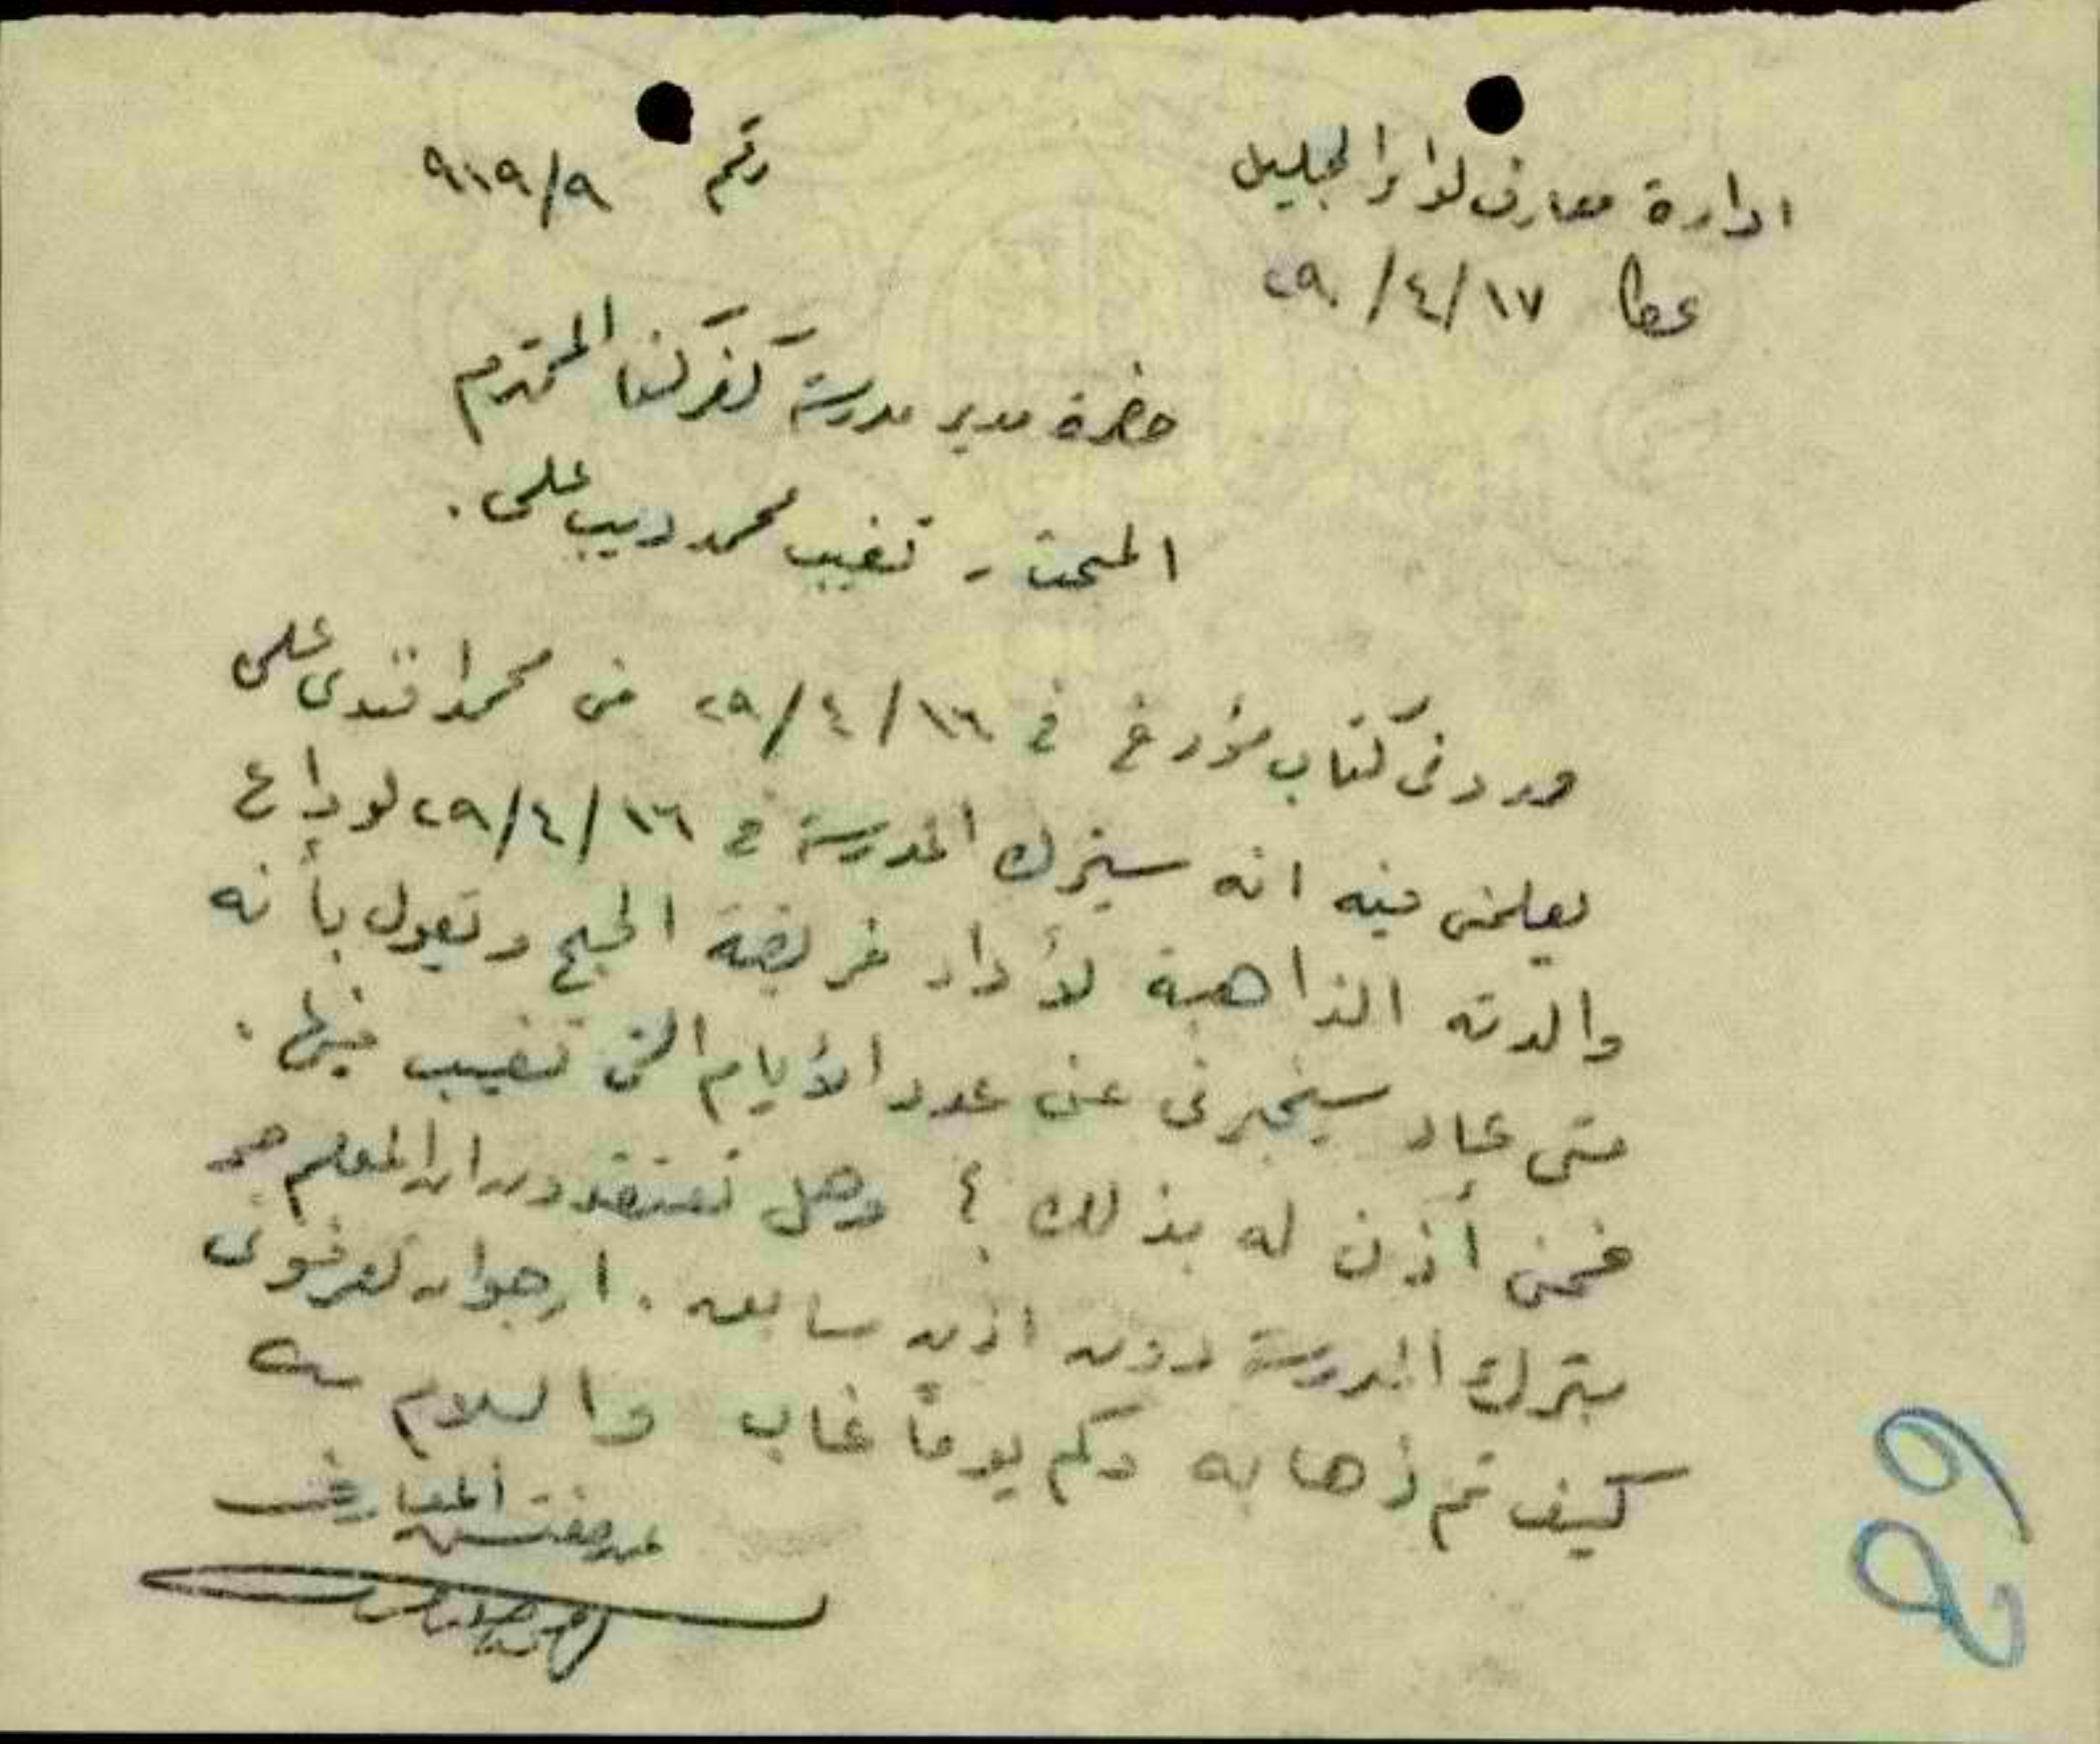 ادارة معارف لواء الجليل
رقم ٩/٩١٩
عكا ١٧/٤/٢٩
حضرة مدير مدرسة كفركنا المحترم
المبحث - تغيب محمد ديب علي .
وردني كتاب مؤرخ في ١٦/٤/٢٩ من محمد افندي علي
يعلمني فيه انه سيترك المدرسة في ١٦/٤/٢٩ لوداع
والدته الذاهبة لأداء فريضة الحج ويقول بأنه
متى عاد سيخبرني عن عدد الأيام التي تغيب فيها .
فمن أذن له بذلك ؟ وهل تعتقدون ان المعلم حر
بترك المدرسة دون اذن سابق . ارجو ان تعرفوني
كيف تم ذهابه وكم يوماً غاب والسلام
عن مفتش المعارف
89